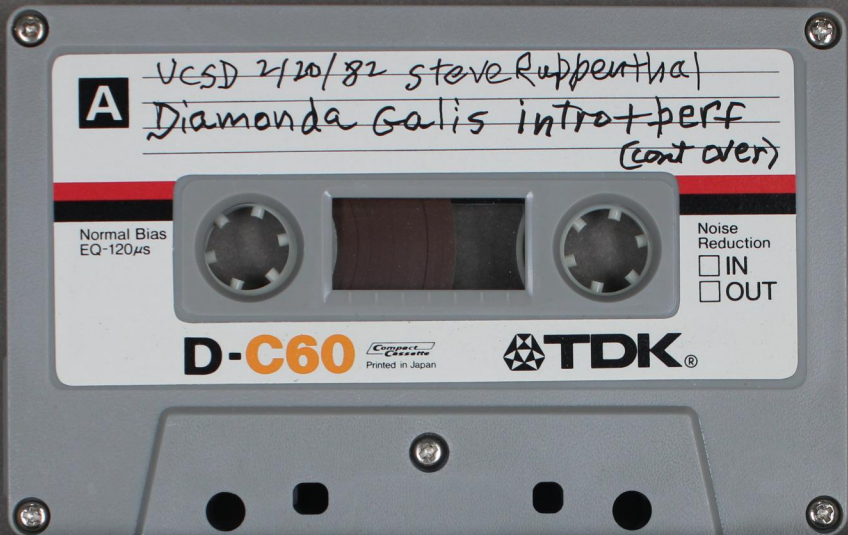 A
UCSD 2/20/82 Steve Ruppenthal
Diamonda Galis intro + perf
(cont over)
Normal Bias
EQ-120µs
Noise
Reduction
IN
OUT
D-C60
Compact
Cassette
Printed in Japan
TDK®